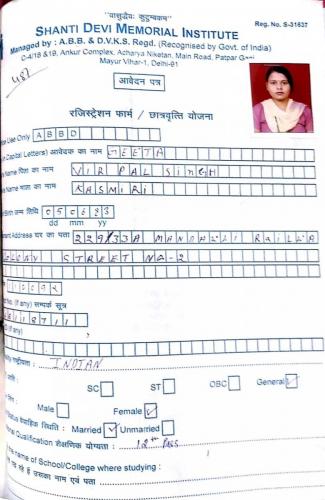 "वासुद्धैवः कुटुम्बकम्"
Reg. No. S-31637
SHANTI DEVI MEMORIAL INSTITUTE
Managed by : A.B.B. & D.V.K.S. Regd. (Recognised by Govt. of India)
C-4/18 &19, Ankur Complex, Acharya Niketan, Main Road, Patpar
Mayur Vihar-1, Delhi-91
487
आवेदन पत्र
रजिस्ट्रेशन फार्म / छात्रवृत्ति योजना
Use Only ABBD
Capital Letters) आवेदक का नाम GEETA
Name पिता का नाम VIR PAL SINGH
Name माता का नाम KASMIRI
Birth जन्म तिथि 050693
dd mm yy
Address घर का पता 229/33A MANDAWLI RAILLA
STREET NO-2
No. (if any) सम्पर्क सूत्र
(if any)
राष्ट्रीयता : INDIAN
SC ST OBC General ✓
Male Female ✓
वैवाहिक स्थिति : Married ✓ Unmarried
Qualification शैक्षणिक योग्यता : 12th PASS
name of School/College where studying :
रहे हैं उसका नाम एवं पता